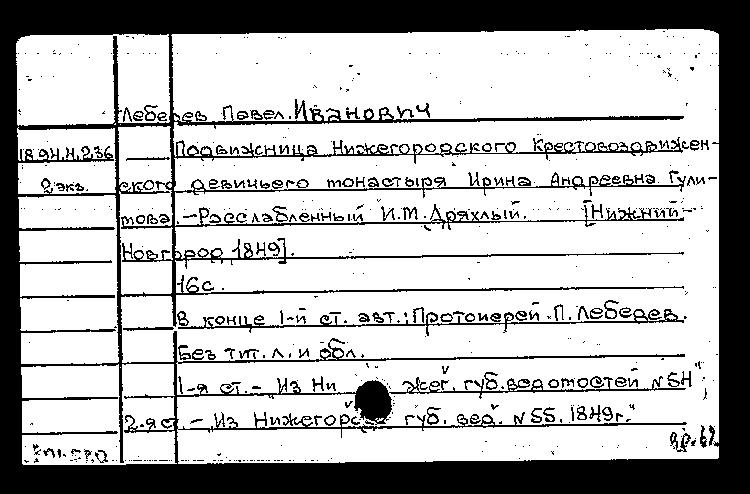 Лебедев, Павел Иванович
18.94.4.236 Подвижница Нижегородского Крестовоздвижен-
2 экз. ского девичьего монастыря Ирина Андреевна Гули-
мова. – Расслабленный И.М. Дряхлый. [Нижний-
Новгород, 1849].
16с.
В конце 1-й ст. авт.: Протоиерей П. Лебедев.
Без тит. л. и обл.
1-я ст. – "Из Ни жег. губ. ведомостей N 54",
2-я ст. – "Из Нижегород губ. вед. N 55. 1849г."